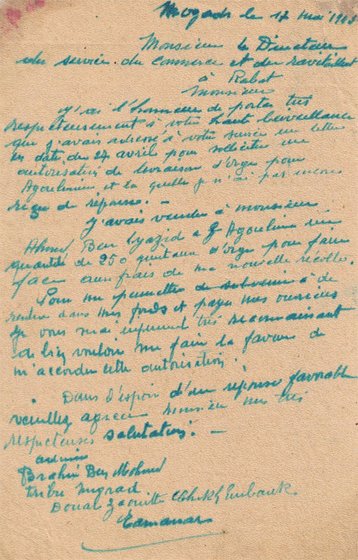 Mogador le 17 mai
Monsieur le Directeur
du service du commerce et du ravitaill
à Rabat
Monsieur
j'ai l'honneur de porter très
respectueusement à votre haut bienveillance
que j'avais adressé à votre service un lettre
en date du 24 avril pour solliciter une
autorisation de livraison d'orge pour
et la quelle je n'ai pas encore
reçu de réponse. -
j'avais vendu à monsieur
Ahmed Ben Lyazid une
quantité de 250 quintaux d'orge pour faire
face aux frais de ma nouvelle récolte.
Pour me permettre de de
rentrer dans mes fonds et payer mes ouvriers
Je vous serai reconnaissant
de bien vouloir me faire la faveur de
m'accorder cette autorisation.
Dans l'espoir d'un réponse favorable
veuillez agréer monsieur mes très
respectueuses salutations. -
Brahim Ben Mohmd
tribu
Douar zaouitte Mbark
Tamanar